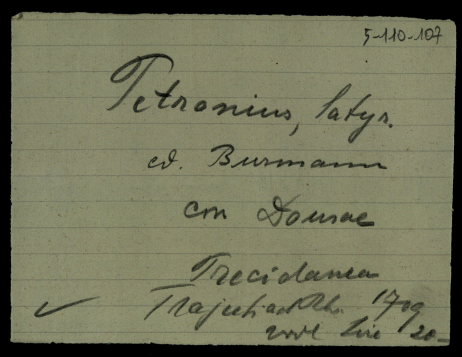 5-110-107
Petronius, Satyr.
ed. Burmann
con Dousae
Trecidanea
Trajecti ad Rh. 1709
20-